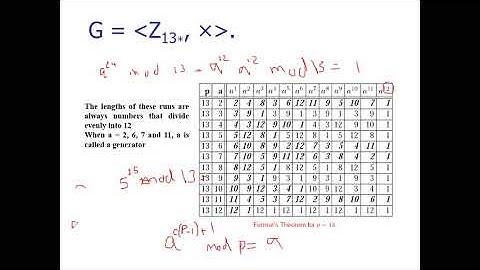 G = <Z₁₃*, ×>.
a²⁴ mod 13 = a¹² a¹² mod 13 = 1
The lengths of these runs are
always numbers that divide
evenly into 12
When a = 2, 6, 7 and 11, a is
called a generator
p a a¹ a² a³ a⁴ a⁵ a⁶ a⁷ a⁸ a⁹ a¹⁰ a¹¹ a¹²
13 2 2 4 8 3 6 12 11 9 5 10 7 1
13 3 3 9 1 3 9 1 3 9 1 3 9 1
13 4 4 3 12 9 10 1 4 3 12 9 10 1
13 5 5 12 8 1 5 12 8 1 5 12 8 1
13 6 6 10 8 9 2 12 7 3 5 4 11 1
13 7 7 10 5 9 11 12 6 3 8 4 2 1
13 8 8 12 5 1 8 12 5 1 8 12 5 1
13 9 9 3 1 9 3 1 9 3 1 9 3 1
13 10 10 9 12 3 4 1 10 9 12 3 4 1
13 11 11 4 5 3 7 12 2 9 8 10 6 1
13 12 12 1 12 1 12 1 12 1 12 1 12 1
5¹⁵ mod 13
Fermat's Theorem for p = 13
a⁽ᵖ⁻¹⁾⁺¹ mod p = a